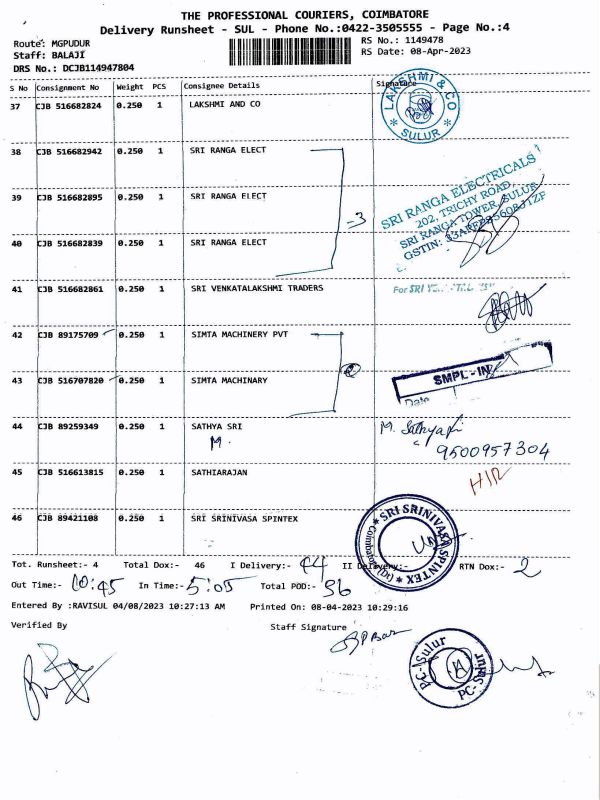 THE PROFESSIONAL COURIERS, COIMBATORE
Delivery Runsheet - SUL - Phone No.:0422-3505555 - Page No.:4
Route: MGPUDUR
RS No.: 1149478
Staff: BALAJI
RS Date: 08-Apr-2023
DRS No.: DCJB114947804
S No Consignment No Weight PCS Consignee Details Signature
37 CJB 516682824 0.250 1 LAKSHMI AND CO
LAKSHMI & CO
* SULUR *
38 CJB 516682942 0.250 1 SRI RANGA ELECT
39 CJB 516682895 0.250 1 SRI RANGA ELECT
=3
SRI RANGA ELECTRICALS
202, TRICHY ROAD,
SRI RANGA TOWER, SULUR
GSTIN:
40 CJB 516682839 0.250 1 SRI RANGA ELECT
41 CJB 516682861 0.250 1 SRI VENKATALAKSHMI TRADERS
For SRI
42 CJB 89175709 0.250 1 SIMTA MACHINERY PVT
43 CJB 516707820 0.250 1 SIMTA MACHINARY
SMPL - IN
Date
44 CJB 89259349 0.250 1 SATHYA SRI
M.
M. Sathya
9500957304
45 CJB 516613815 0.250 1 SATHIARAJAN
46 CJB 89421108 0.250 1 SRI SRINIVASA SPINTEX
* SRI SRINIVASA SPINTEX *
Coimbatore (Dt)
Tot. Runsheet:- 4 Total Dox:- 46 I Delivery:- 44 II Delivery:- RTN Dox:- 2
Out Time:- 10:45 In Time:- 5:05 Total POD:- 36
Entered By :RAVISUL 04/08/2023 10:27:13 AM Printed On: 08-04-2023 10:29:16
Verified By Staff Signature
PC-Sulur
PC-Sulur